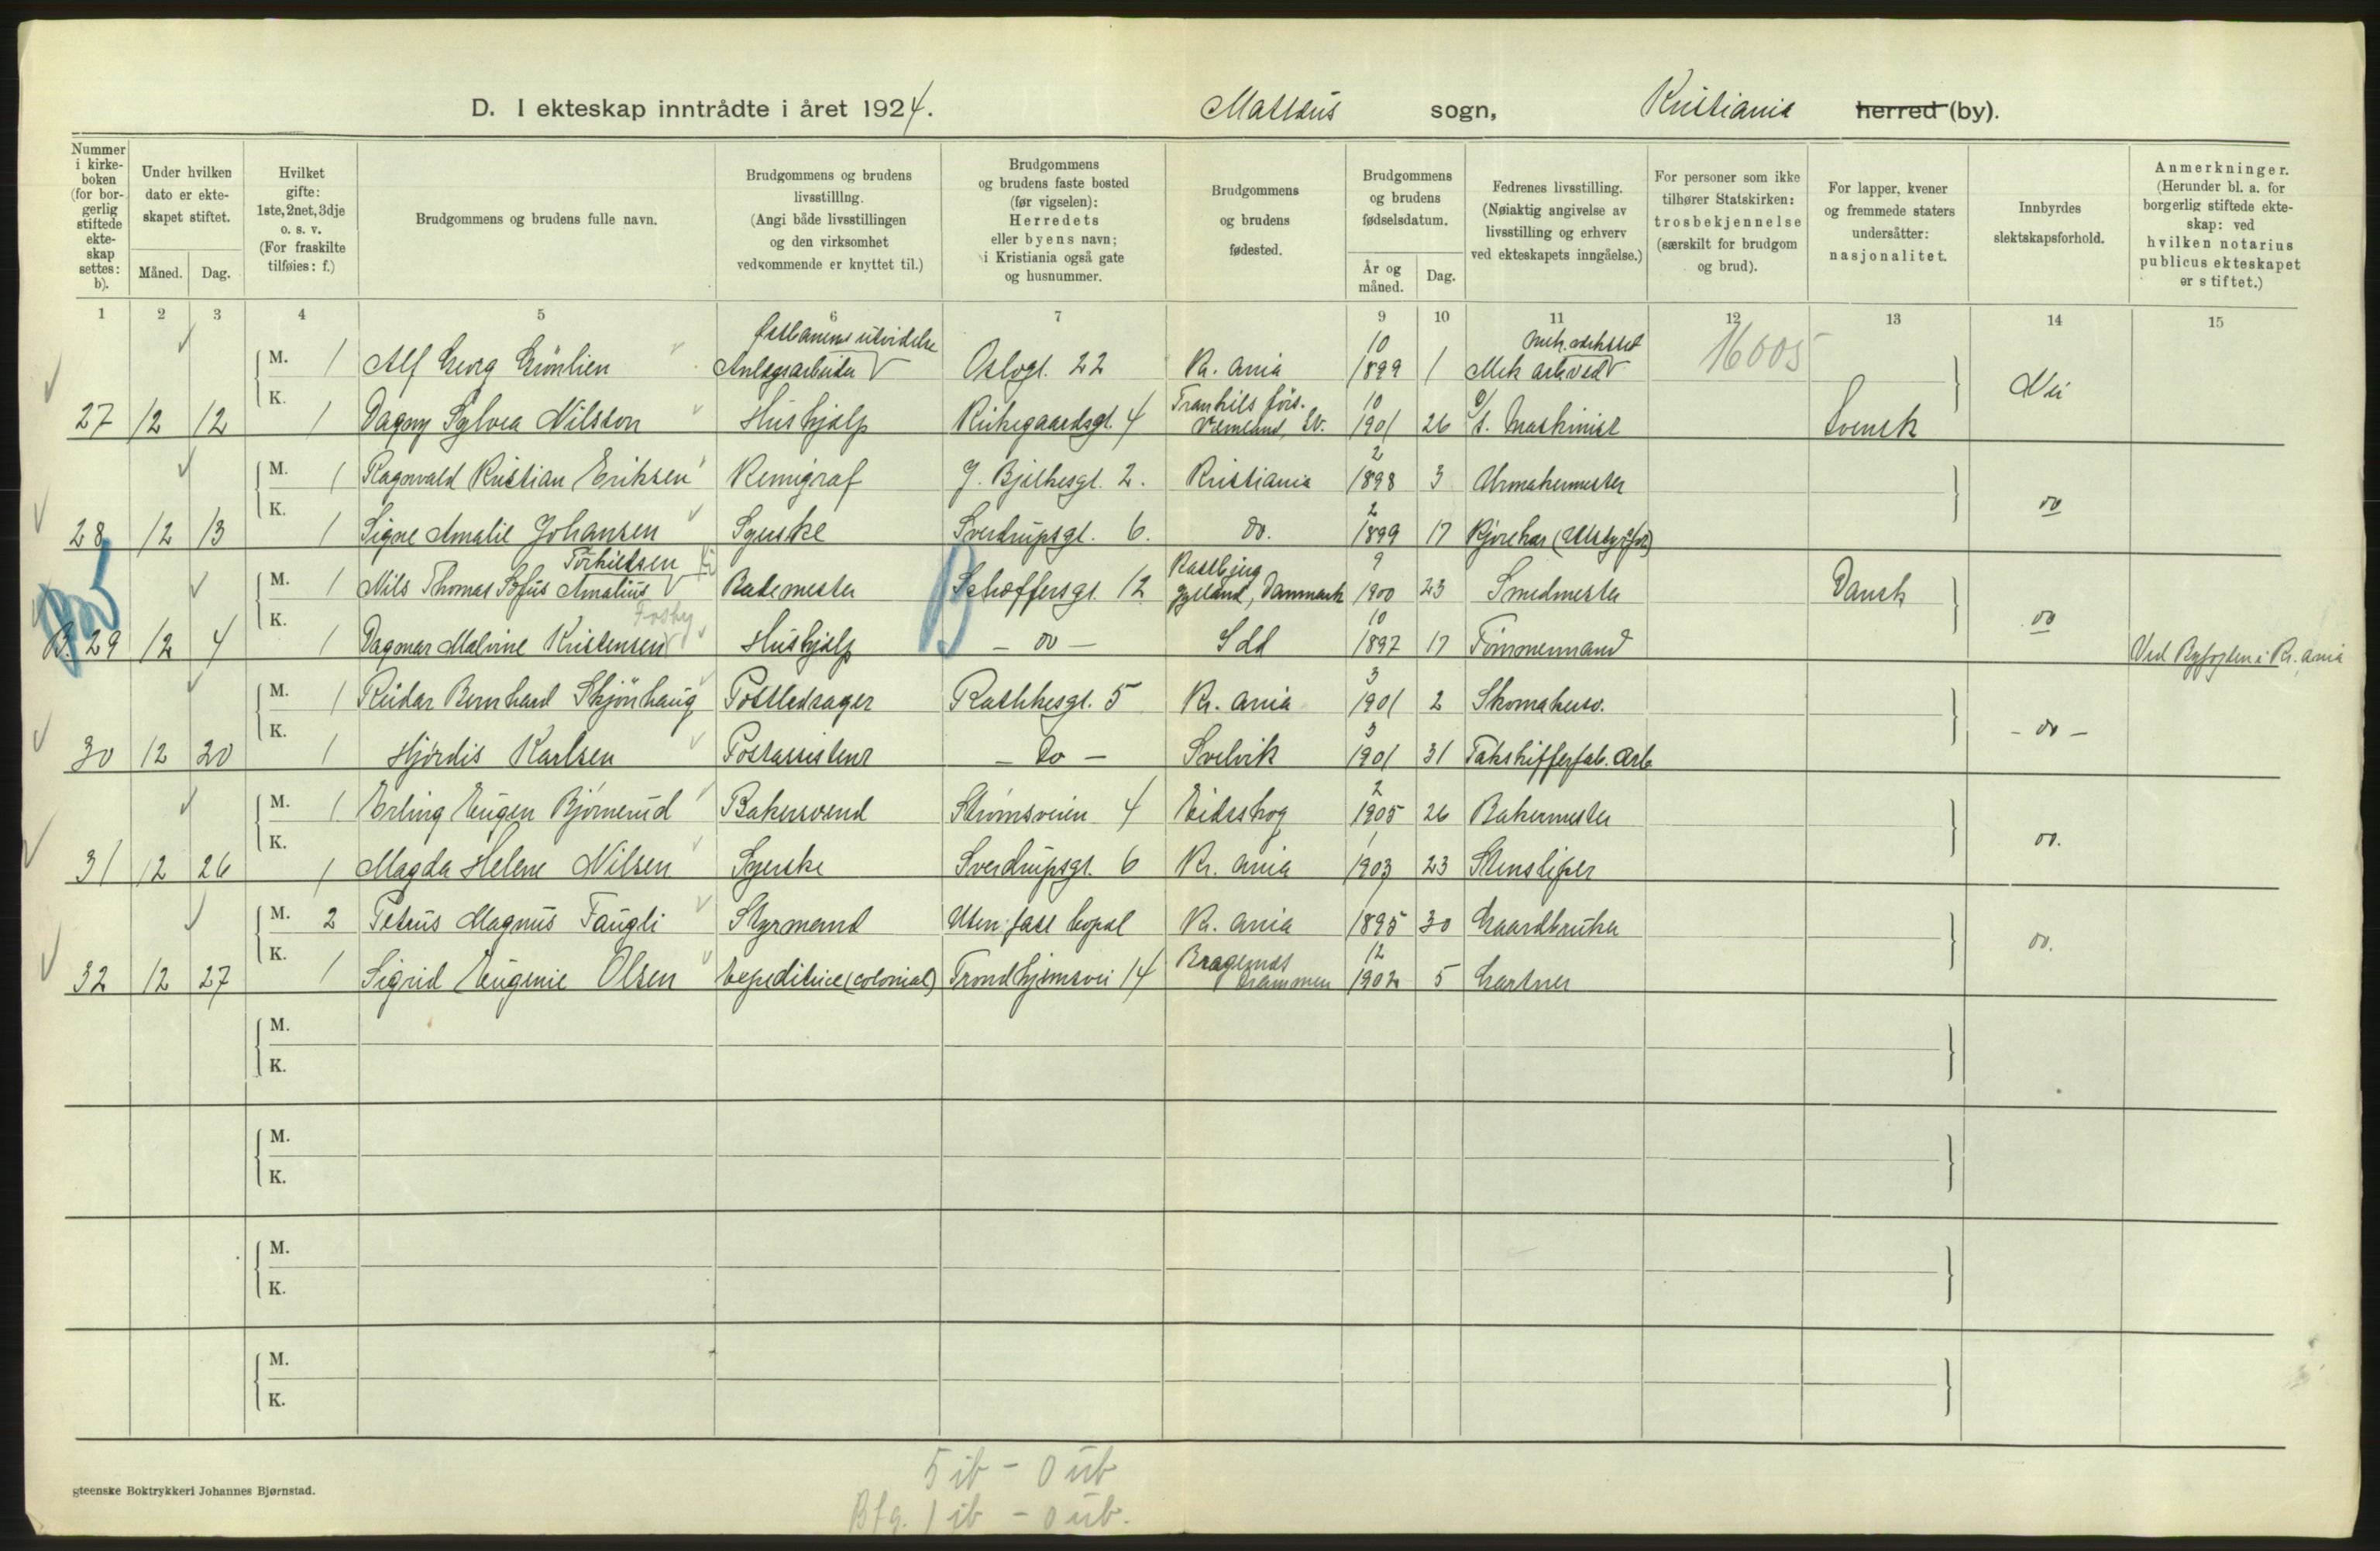 D. I ekteskap inntrådte i året 1924. Mattæus sogn, Kristiania herred (by).
Nummer i kirkeboken (for borgerlig stiftede ekteskap settes: b).
Under hvilken dato er ekteskapet stiftet.
Måned. Dag.
Hvilket gifte: 1ste, 2net, 3dje o. s. v. (For fraskilte tilføies: f.)
Brudgommens og brudens fulle navn.
Brudgommens og brudens livsstillIng. (Angi både livsstillingen og den virksomhet vedkommende er knyttet til.)
Brudgommens og brudens faste bosted (før vigselen): Herredets eller byens navn; i Kristiania også gate og husnummer.
Brudgommens og brudens fødested.
Brudgommens og brudens fødselsdatum.
År og måned. Dag.
Fedrenes livsstilling. (Nøiaktig angivelse av livsstilling og erhverv ved ekteskapets inngåelse.)
For personer som ikke tilhører Statskirken: trosbekjennelse (særskilt for brudgom og brud).
For lapper, kvener og fremmede staters undersåtter: nasjonalitet.
Innbyrdes slektskapsforhold.
Anmerkninger. (Herunder bl. a. for borgerlig stiftede ekteskap: ved hvilken notarius publicus ekteskapet er stiftet.)
1 2 3 4 5 6 7 9 10 11 12 13 14 15
Østbanens utvidelse 10 16005
M. 1 Alf Georg Grönlien Anlegsarbeider Oslogt. 22 Kr.ania 1899 1 Mek arb. ved Nei
10
27 12 12 K. 1 Dagny Sylvia Nilsson Hushjælp Kirkegaardsgt. 4 Vermland, Sv. 1901 26 Maskinist Svensk
2
M. 1 Ragnvald Kristian Eriksen Kemigraf J. Bjelkesgt. 2. Kristiania 1898 3 Urmakermester
2
28 12 13 K. 1 Signe Amalie Johansen Syerske Sverdrupsgt. 6. do. 1899 17 Kjørekar do
Torkildsen 9
M. 1 Nils Thomas Sofus Amalius Bademester Schæffersgt. 12 Jylland, Danmark 1900 23 Smedmester Dansk
Fosby 10
B. 29 12 4 K. 1 Dagmar Malvine Kristensen Hushjælp B - do - 1897 17 Tömmermand do Ved Byfogden i Kr.ania
3
M. 1 Reidar Bernhard Skjönhaug Postledsager Rathkesgt. 5 Kr.ania 1901 2 Skomakersv.
3
30 12 20 K. 1 Hjördis Karlsen Postassistent - do - Svelvik 1901 31 Takskifferfab. Arb. - do -
2
M. 1 Erling Eugen Björnerud Bakersvend Strömsveien 4 Eidskog 1905 26 Bakermester
1
31 12 26 K. 1 Magda Helene Nilsen Syerske Sverdrupsgt. 6 Kr.ania 1903 23 Stensliper do.
M. 2 Petrus Magnus Faugli Styrmand Uten fast bopæl Kr.ania 1895 30 Gaardbruker
Bragernes 12
32 12 27 K. 1 Sigrid Eugenie Olsen Expeditrice (colonial) Trondhjemsvei 14 Drammen 1902 5 Gartner do.
M.
K.
M.
K.
M.
K.
M.
K.
5 ib - 0 ub
gteenske Boktrykkeri Johannes Bjørnstad.
Bfg. 1 ib - 0 ub.